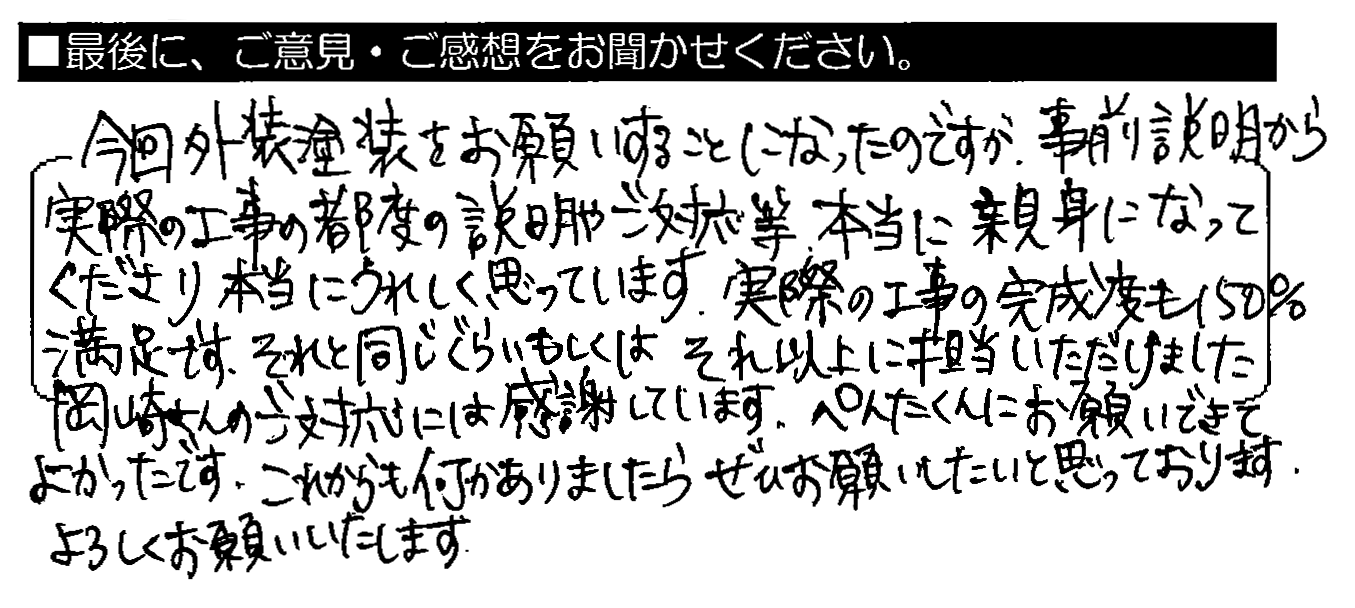 ■最後に、ご意見・ご感想をお聞かせください。
今回外装塗装をお願いすることになったのですが、事前説明から
実際の工事の都度の説明やご対応等、本当に親身になって
くださり本当にうれしく思っています。実際の工事の完成度も150%
満足です。それと同じぐらいもしくはそれ以上に担当いただけました
岡崎さんのご対応には感謝しています。ぺんたくんにお願いできて
よかったです。これからも何かありましたらぜひお願いしたいと思っております。
よろしくお願いいたします。